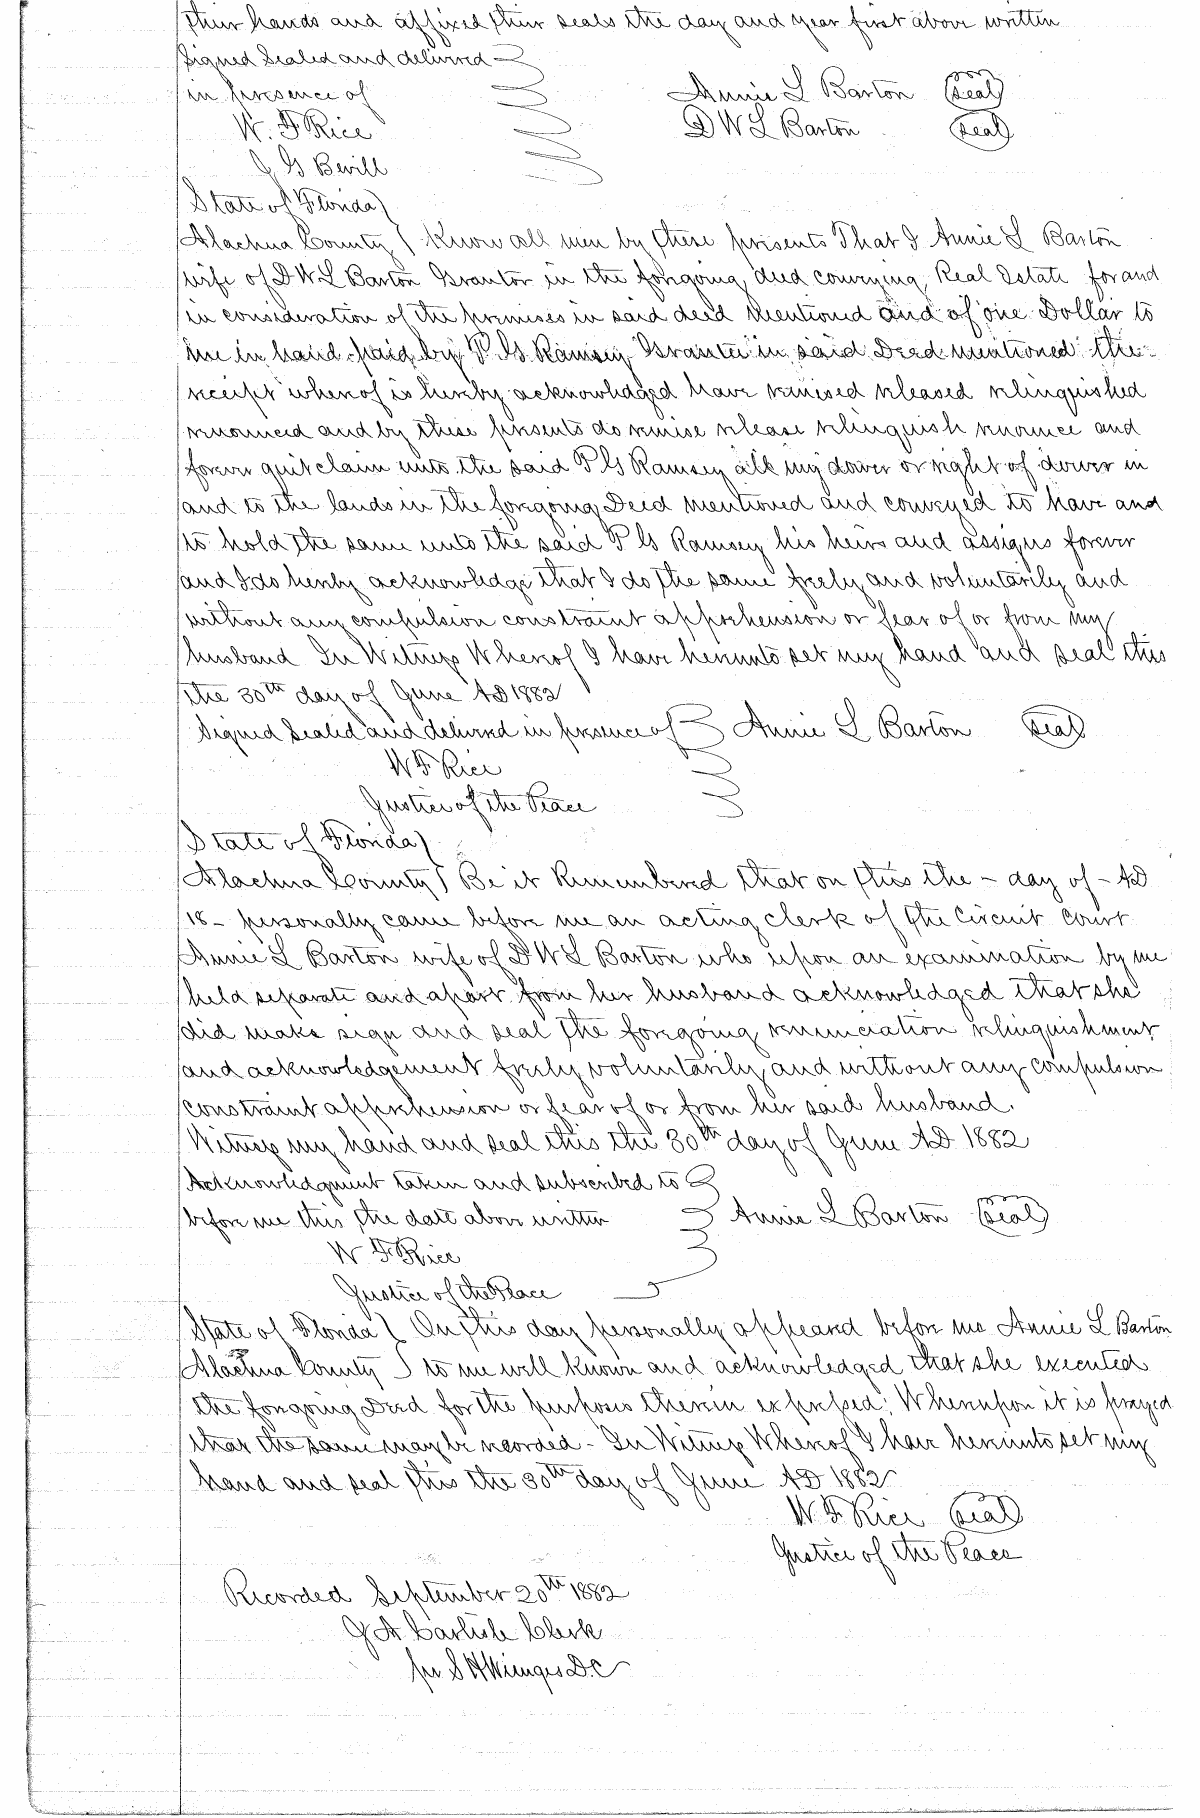 their hands and affixed their seals the day and year first above written
Signed Sealed and delivered
in presence of Annie L Barton (Seal)
W. F Rice D W L Barton (Seal)
J G Bevill
State of Florida
Alachua County Know all men by these presents That I Annie L Barton
wife of D W L Barton Grantor in the foregoing deed conveying Real Estate for and
in consideration of the premises in said deed mentioned and of one Dollar to
me in hand paid by P. G Ramsey Grantee in said Deed mentioned the
receipt whereof is hereby acknowledged have remised released relinquished
renounced and by these presents do remise release relinquish renounce and
forever quit claim unto the said P G Ramsey all my dower or right of dower in
and to the lands in the foregoing Deed mentioned and conveyed to have and
to hold the same unto the said P G Ramsey his heirs and assigns forever
and I do hereby acknowledge that I do the same freely and voluntarily and
without any compulsion constraint apprehension or fear of or from my
husband In Witness Whereof I have hereunto set my hand and seal this
the 30th day of June AD 1882
Signed Sealed and delivered in presence of Annie L Barton (Seal)
W F Rice
Justice of the Peace
State of Florida
Alachua County Be it Remembered that on this the – day of – AD
18– personally came before me an acting clerk of the Circuit Court
Annie L Barton wife of D W L Barton who upon an examination by me
held separate and apart from her husband acknowledged that she
did make sign and seal the foregoing renunciation relinquishment
and acknowledgement freely voluntarily and without any compulsion
constraint apprehension or fear of or from her said husband.
Witness my hand and seal this the 30th day of June AD 1882
Acknowledgment taken and subscribed to
before me this the date above written Annie L Barton (Seal)
W F Rice
Justice of the Peace
State of Florida On this day personally appeared before me Annie L Barton
Alachua County to me well known and acknowledged that she executed
the foregoing Deed for the purposes therein expressed; Whereupon it is prayed
that the same may be recorded – In Witness Whereof I have hereunto set my
hand and seal this the 30th day of June AD 1882
W. F Rice (Seal)
Justice of the Peace
Recorded September 20th 1882
J A Carlisle Clerk
per S H Wienges D.C